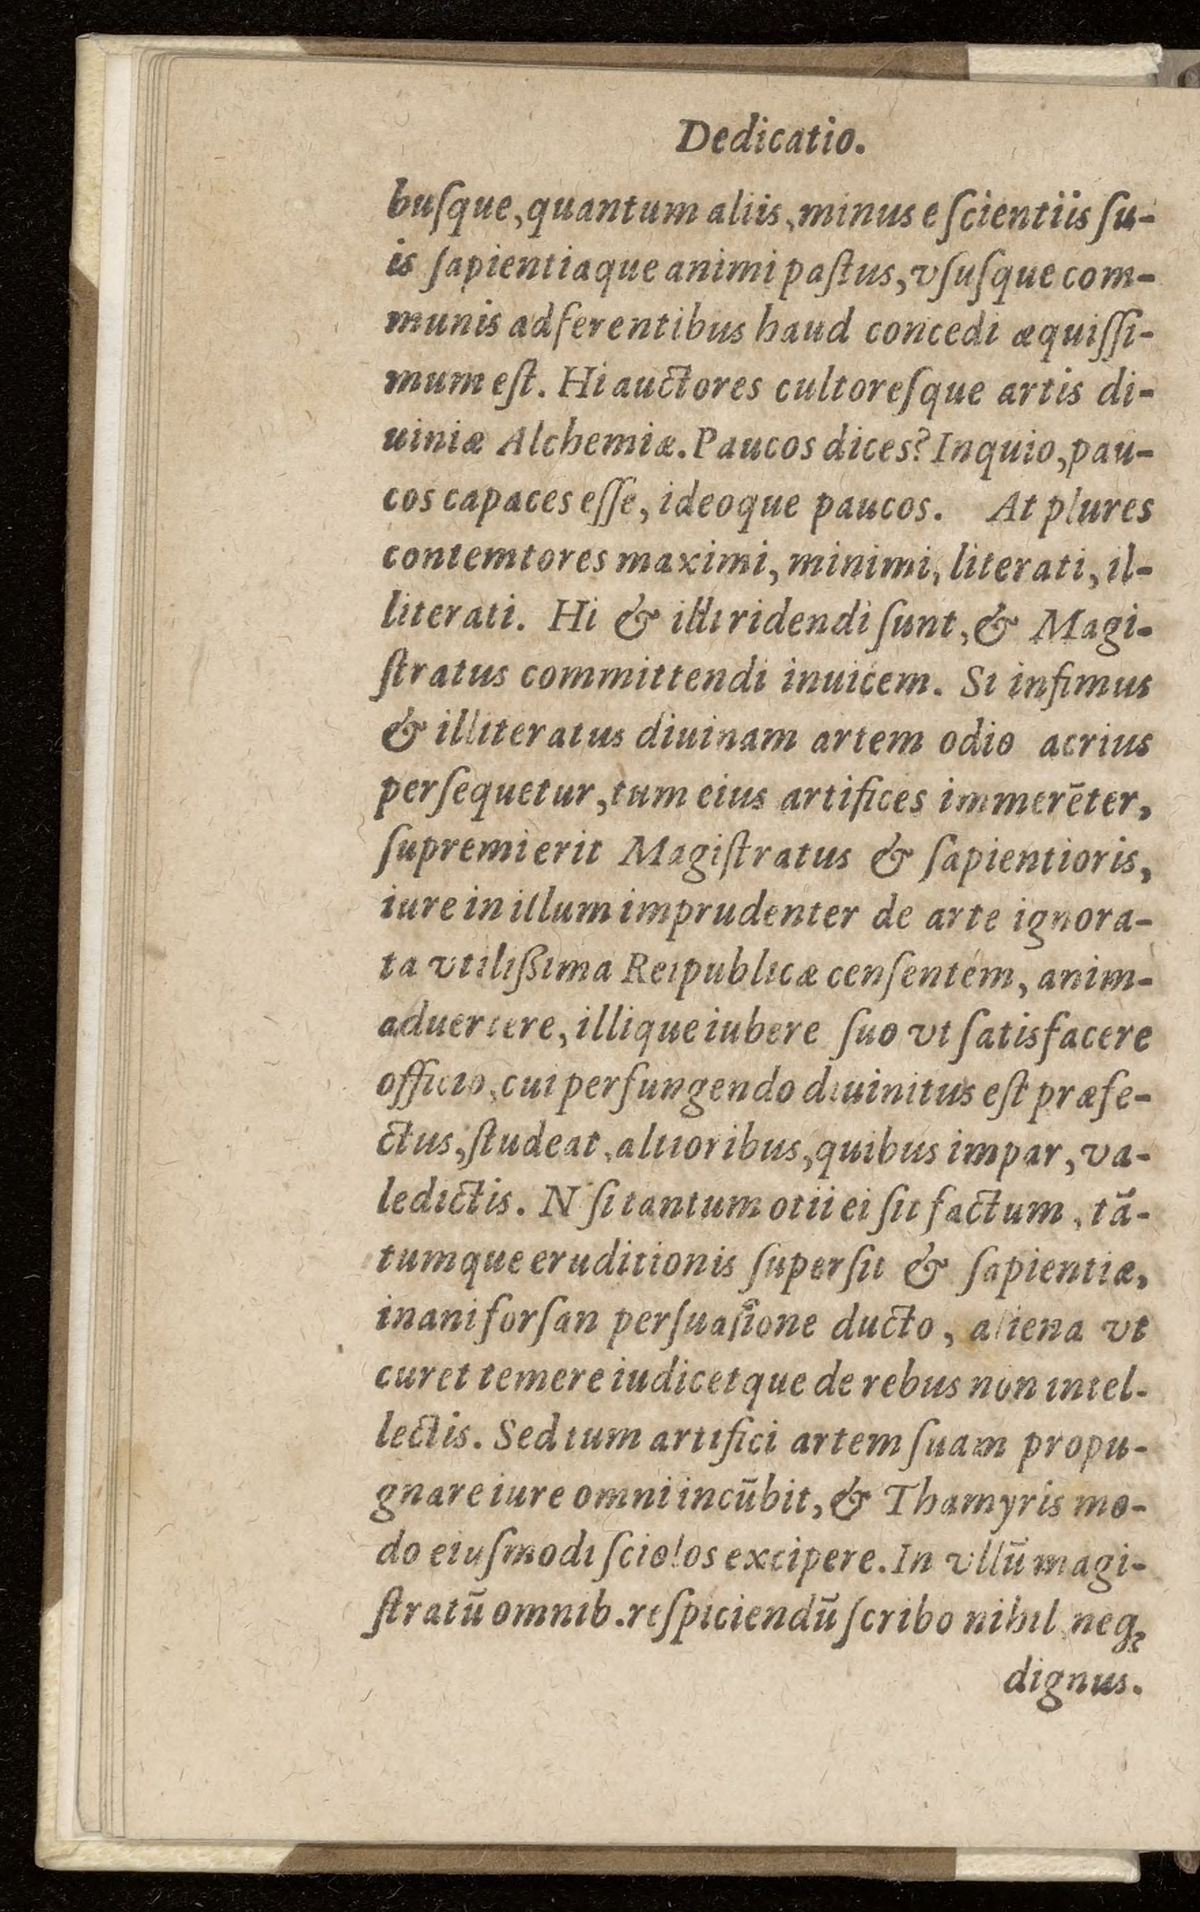 Dedicatio.
buſque, quantum aliis, minus e ſcientiis ſu-
is ſapientiaque animi paſtus, vſuſque com-
munis adferentibus haud concedi æquiſſi-
mum eſt. Hi auctores cultoreſque artis di-
uiniæ Alchemiæ. Paucos dices? Inquio, pau-
cos capaces eſſe, ideoque paucos. At plures
contemtores maximi, minimi, literati, il-
literati. Hi & illi ridendi ſunt, & Magi-
ſtratus committendi inuicem. Si infimus
& illiteratus diuinam artem odio acrius
perſequetur, tum eius artifices immerēter,
ſupremi erit Magiſtratus & ſapientioris,
iure in illum imprudenter de arte ignora-
ta vtilißima Reipublicæ cenſentem, anim-
aduertere, illique iubere ſuo vt ſatisfacere
officio, cui perfungendo diuinitus eſt præfe-
ctus, ſtudeat, altioribus, quibus impar, va-
ledictis. N ſi tantum otii ei ſit factum, tā-
tumque eruditionis ſuperſit & ſapientiæ,
inani forſan perſuaſione ducto, aliena vt
curet temere iudicetque de rebus non intel-
lectis. Sed tum artifici artem ſuam propu-
gnare iure omni incūbit, & Thamyris mo-
do eiuſmodi ſciolos excipere. In vllū magi-
ſtratū omnib. reſpiciendū ſcribo nihil neq;
dignus.